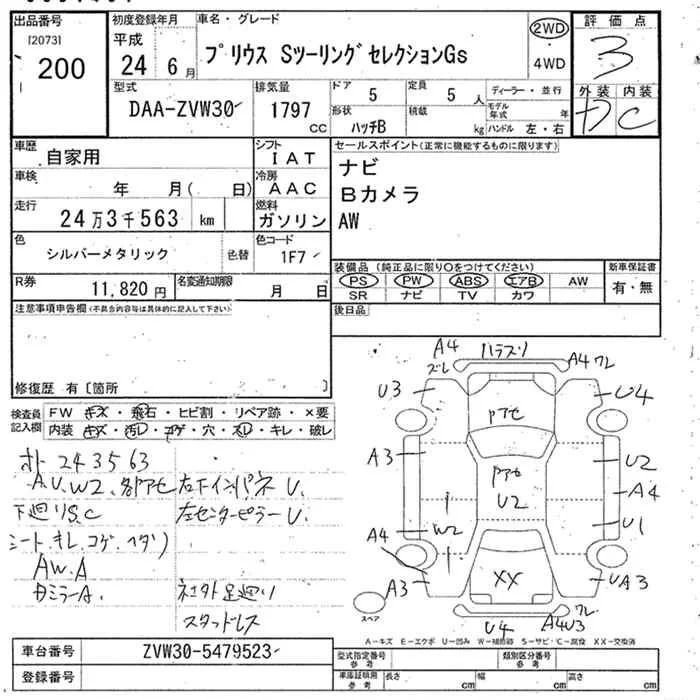 出品番号 初度登録年月 車名・グレード 評価点
[2073] 平成 プリウス SツーリングセレクションGs 2WD 3
200 24年 6月 4WD
外装 内装
型式 排気量 ドア 5 定員 5人 ディーラー・並行 D C
DAA-ZVW30 1797cc 形状 ハッチB 積載 kg モデル年式 年
ハンドル 左・右
車歴 自家用 シフト IAT セールスポイント(正常に機能するものに限ります)
車検 年 月( 日) 冷房 AAC ナビ
Bカメラ
走行 24万3千563 km 燃料 ガソリン AW
色 シルバーメタリック 色替 色コード 1F7
装備品(純正品に限り○をつけてください) 新車保証書
R券 11,820円 名変通知期限 月 日 PS PW ABS エアB AW 有・無
SR ナビ TV カワ
注意事項申告欄(不具合内容等は具体的に記入して下さい) 後日品
修復歴 有〔箇所 〕
検査員記入欄 FW キズ・飛石・ヒビ割・リペア跡・×要
内装 キズ・汚レ・コゲ・穴・スレ・キレ・破レ
オト 243563
A.U.W2.各アセ 右下インパネU.
下廻りS.C 左センターピラーU.
シート.キレ.コゲ.ヘタリ
AW.A
カミラーA. ネコタト足廻リ
スタッドレス
A4 ズレ ハラスリ A4 ワレ
U3 アセ U4
A3 アセ U2 U2
A4
W2 U1
A4
A3 XX UA3
スペア U4 A4U3 ワレ
A-キズ E-エクボ U-凹み W-補修跡 S-サビ・C-腐食 XX-交換済
車台番号 ZVW30-5479523 型式指定番号 参考 類別区分番号 参考
登録番号 車庫証明用 参考 長さ cm 幅 cm 高さ cm